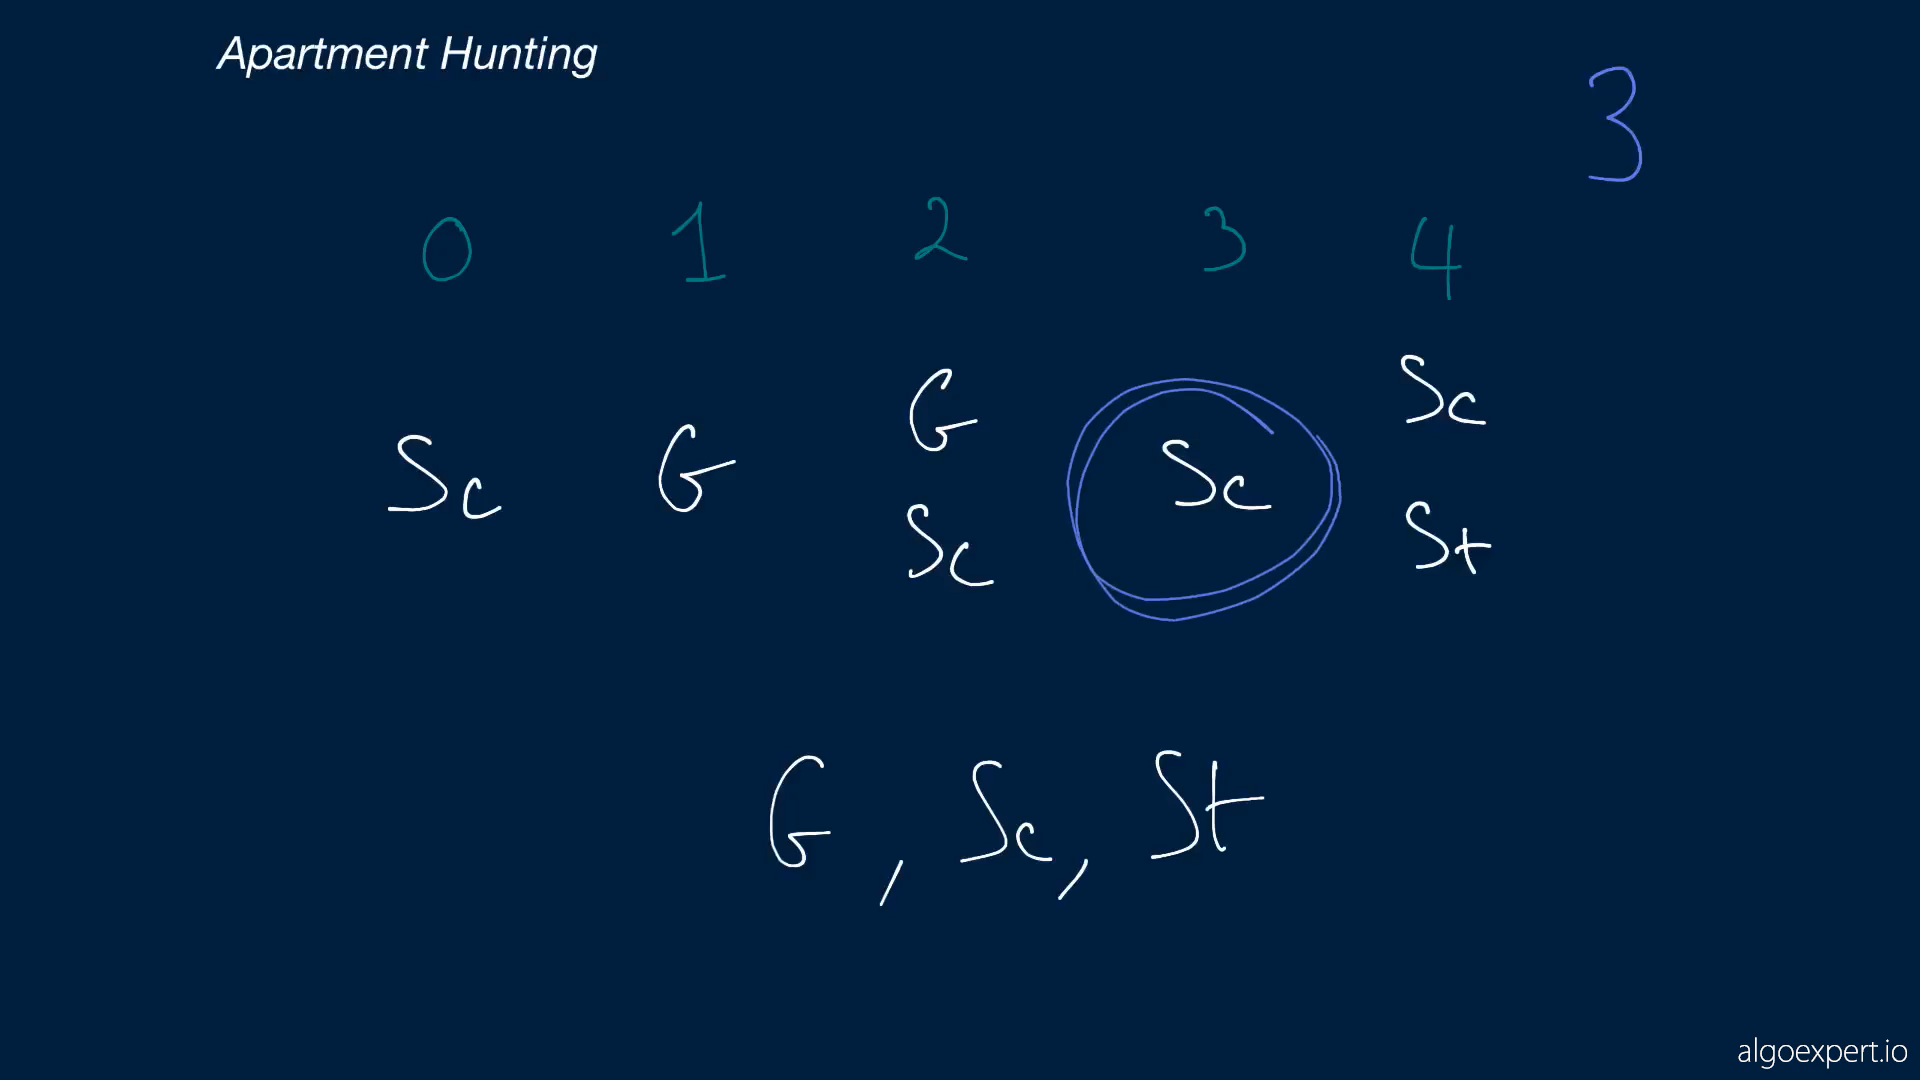 Apartment Hunting
3
0 1 2 3 4
G Sc
Sc G Sc
Sc St
G, Sc, St
algoexpert.io